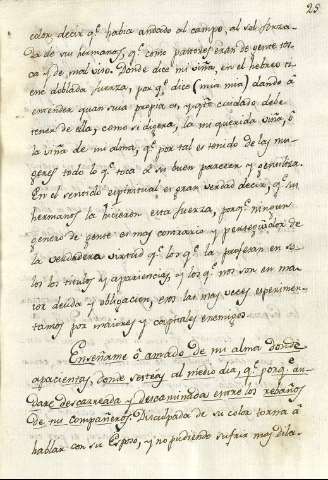 25
color, decir q.e habia andado al campo, al sol forza-
da de sus hermanos, q.e como pastores eran de gente tos-
ca y de mal uso. Donde dice mi viña, en el hebreo tie-
ne doblada fuerza, por q.e dice (mia mia) dando á
entender quan suia propia es, y q.to cuidado debe
tener de ella, como si digera, la mi querida viña, ó
la viña de mi alma, q.e por tal es tenido de las mu-
geres todo lo q.e toca á su buen parecer y gentileza.
En el sentido espiritual es gran verdad decir, q.e sus
hermanos la hicieron esta fuerza, porq.e ningun
genero de gente es mas contrario y perseguidor de
la verdadera virtud q.e los q.e la profesan en so-
los los titulos y apariencias, y los q.e nos son en ma-
ior deuda y obligacion, esos las mas veces experimen-
tamos por maiores y capitales enemigos.
Enseñame ó amado de mi alma donde
apacientas, donde sesteas al medio dia, q.e porq.e an-
daré descarreada y descaminada entre los rebaños
de tus compañeros. Disculpada de su color torna á
hablar con su Esposo, y no pudiendo sufrir mas dila-